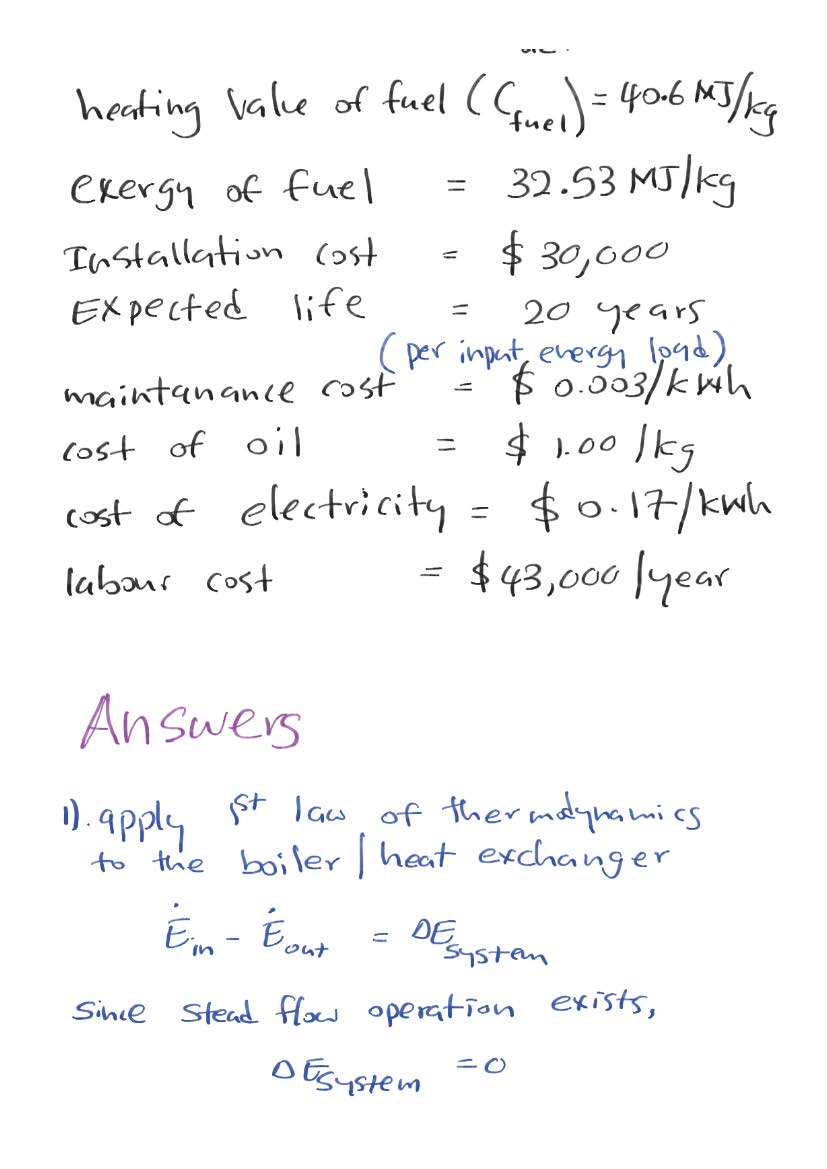 heating value of fuel (C_fuel) = 40.6 MJ/kg
exergy of fuel = 32.53 MJ/kg
Installation cost = $ 30,000
Expected life = 20 years
(per input energy load)
maintanance cost = $ 0.003/kwh
cost of oil = $ 1.00 /kg
cost of electricity = $ 0.17/kwh
labour cost = $ 43,000 /year
Answers
1). apply 1st law of thermodynamics
to the boiler / heat exchanger
Ė_in - Ė_out = ΔE_system
since stead flow operation exists,
ΔE_system = 0